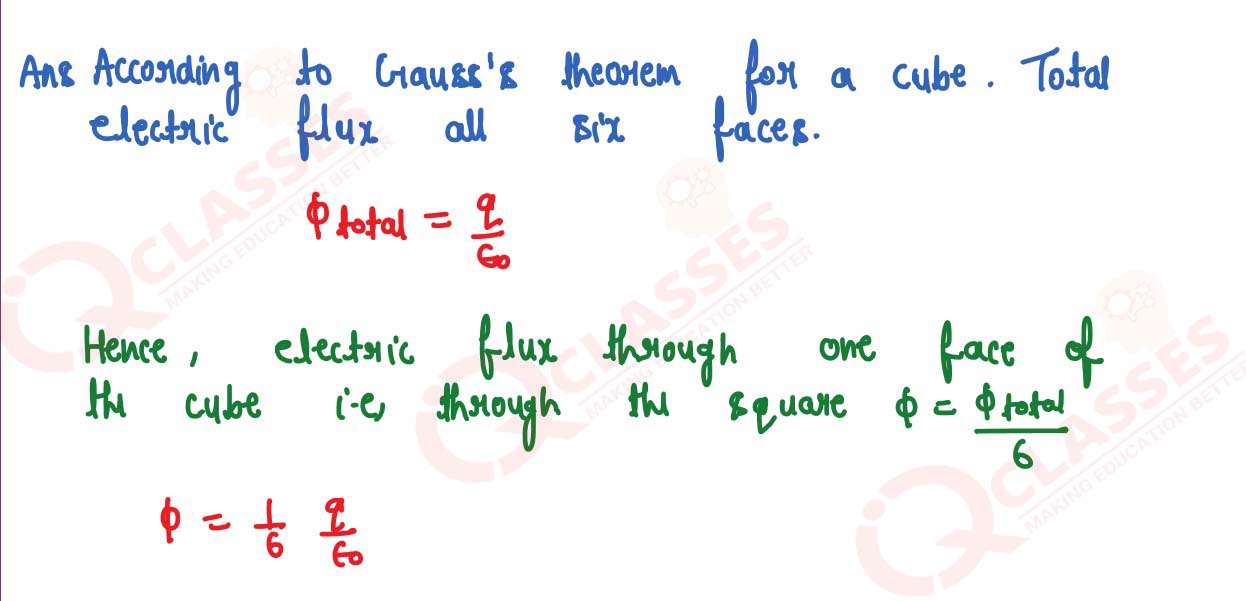 Ans According to Gauss's theorem for a cube. Total
electric flux all six faces.
ϕ total = q/ϵ₀
Hence, electric flux through one face of
the cube i.e, through the square ϕ = ϕ total/6
ϕ = 1/6 q/ϵ₀
IQ CLASSES
MAKING EDUCATION BETTER
IQ CLASSES
MAKING EDUCATION BETTER
IQ CLASSES
MAKING EDUCATION BETTER